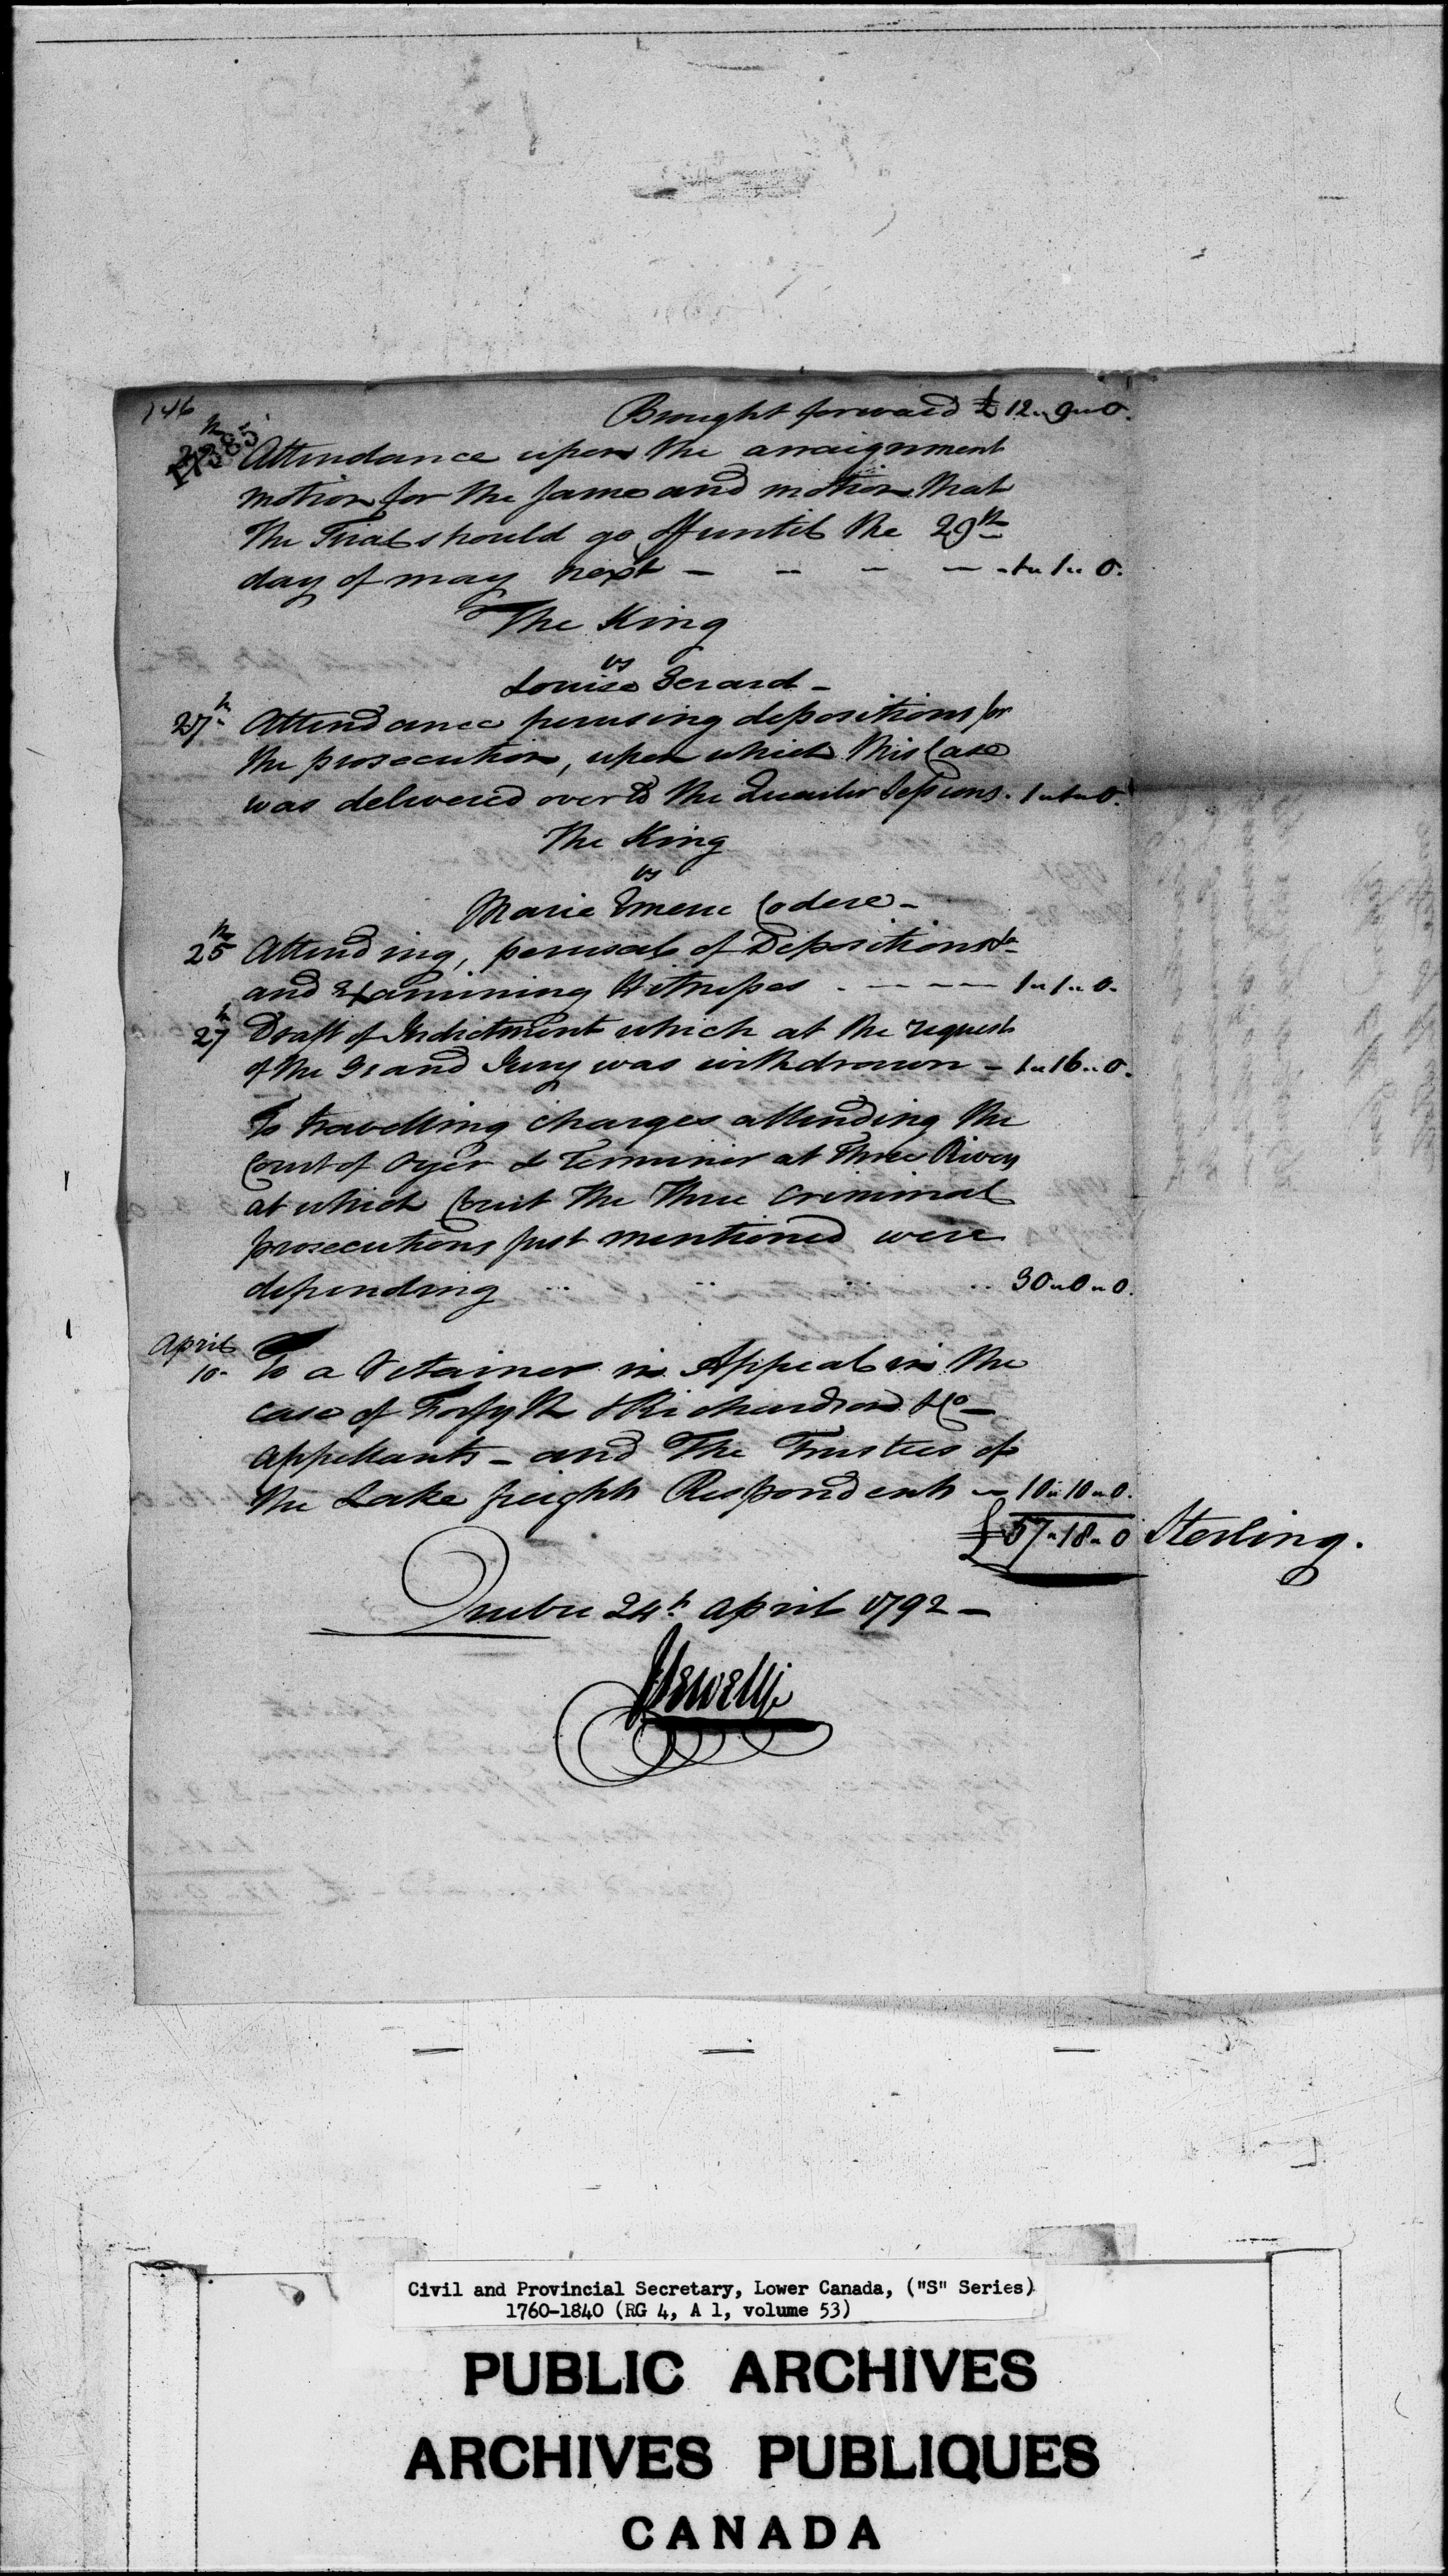 Brought forward £ 12 „ 9 „ 0.
Attendance upon the arraignment
motion for the same and motion that
the Trial should go off until the 29th
day of may next - - - - 1 „ 1 „ 0.
The King
vs
Louise Gerard -
27th Attendance perusing depositions for
the prosecution, upon which this Case
was delivered over to the Quarter Sessions. 1 „ 1 „ 0.
The King
vs
Marie Emene Codere -
25th Attending, perusal of Depositions &c
and Examining Witnesses - - - - 1 „ 1 „ 0.
27th Draft of Indictment which at the request
of the Grand Jury was withdrawn - 1 „ 16 „ 0.
To travelling charges attending the
Court of Oyer & Terminer at Three Rivers
at which Court the three Criminal
prosecutions just mentioned were
depending .. .. .. .. 30 „ 0 „ 0.
April
10 - To a Retainer in Appeal in the
case of Forsyth & Richardson & Co -
Appellants - and The Trustees of
the Lake freight Respondents - 10 „ 10 „ 0.
£ 57 „ 18 „ 0 Sterling.
Quebec 24th April 1792 -
J Sewell
Civil and Provincial Secretary, Lower Canada, ("S" Series)
1760-1840 (RG 4, A 1, volume 53)
PUBLIC ARCHIVES
ARCHIVES PUBLIQUES
CANADA